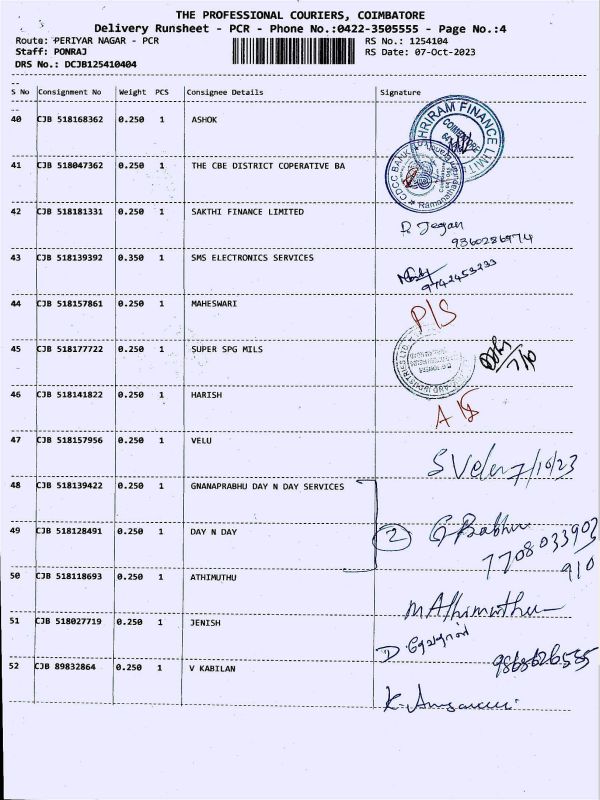 THE PROFESSIONAL COURIERS, COIMBATORE
Delivery Runsheet - PCR - Phone No.:0422-3505555 - Page No.:4
Route: PERIYAR NAGAR - PCR
RS No.: 1254104
Staff: PONRAJ
RS Date: 07-Oct-2023
DRS No.: DCJB125410404
S No Consignment No Weight PCS Consignee Details Signature
40 CJB 518168362 0.250 1 ASHOK
SHRIRAM FINANCE LIMITED
41 CJB 518047362 0.250 1 THE CBE DISTRICT COPERATIVE BA
CDCC BANK
42 CJB 518181331 0.250 1 SAKTHI FINANCE LIMITED
P. Jegan
9360286974
43 CJB 518139392 0.350 1 SMS ELECTRONICS SERVICES
9742453233
44 CJB 518157861 0.250 1 MAHESWARI
P/S
45 CJB 518177722 0.250 1 SUPER SPG MILS
7/10
46 CJB 518141822 0.250 1 HARISH
47 CJB 518157956 0.250 1 VELU
S Velu 7/10/23
48 CJB 518139422 0.250 1 GNANAPRABHU DAY N DAY SERVICES
49 CJB 518128491 0.250 1 DAY N DAY
2 G Babhu
7708033903
9/0
50 CJB 518118693 0.250 1 ATHIMUTHU
M Athimuthu
51 CJB 518027719 0.250 1 JENISH
52 CJB 89832864 0.250 1 V KABILAN